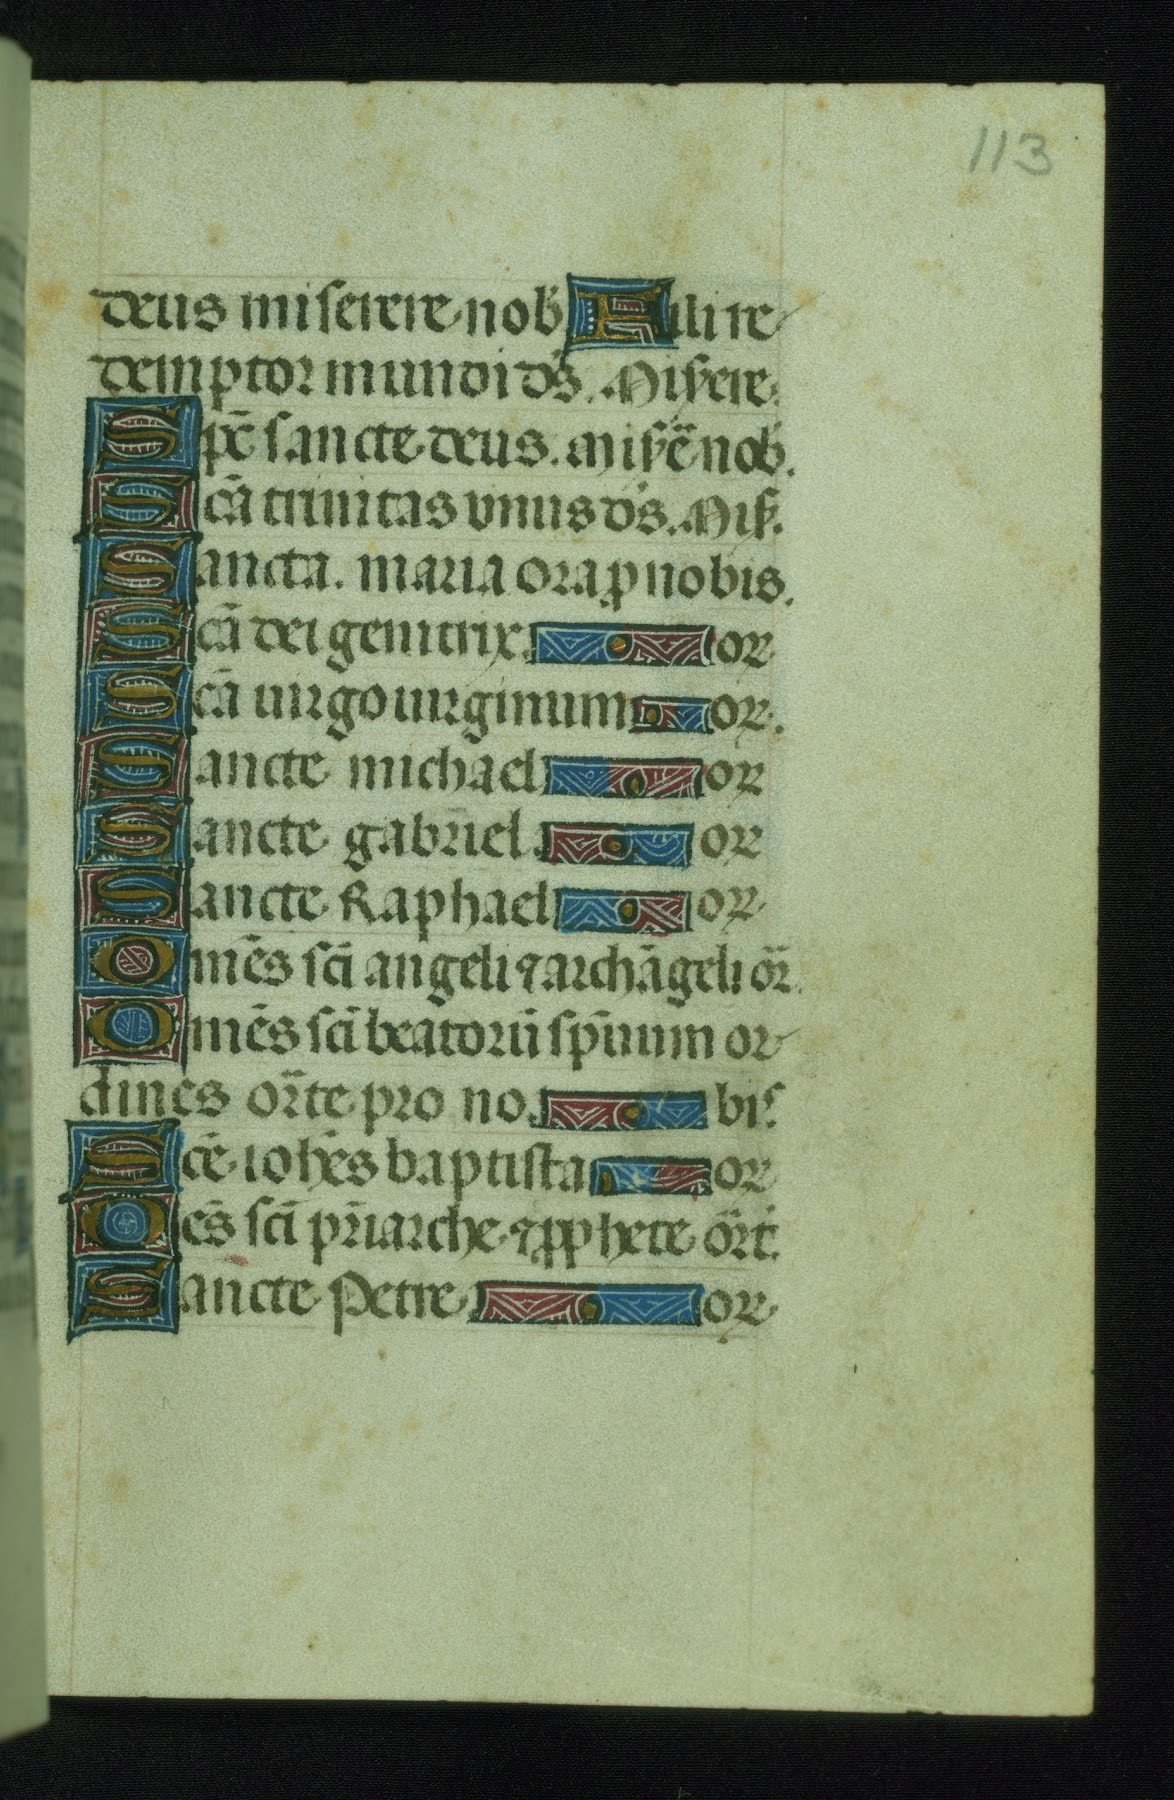 113
deus miserere nob Fili re
demptor mundi ds̄. Misere
Sp̄c sancte deus. misē nob.
Scā trinitas vnus ds̄. Mis.
Sancta. maria ora ꝓ nobis.
Scā dei genitrix. or
Scā uirgo uirginum or.
Sancte michael or
Sancte gabriel. or
Sancte Raphael or
Omēs sc̄i angeli ⁊ archāgeli or̄.
Omēs sc̄i beatorū sp̄uum or
dines or̄te pro no. bis
Scē iohēs baptista or
Oēs sc̄i pr̄iarche ⁊ ꝓphete or̄t.
Sancte Petre or